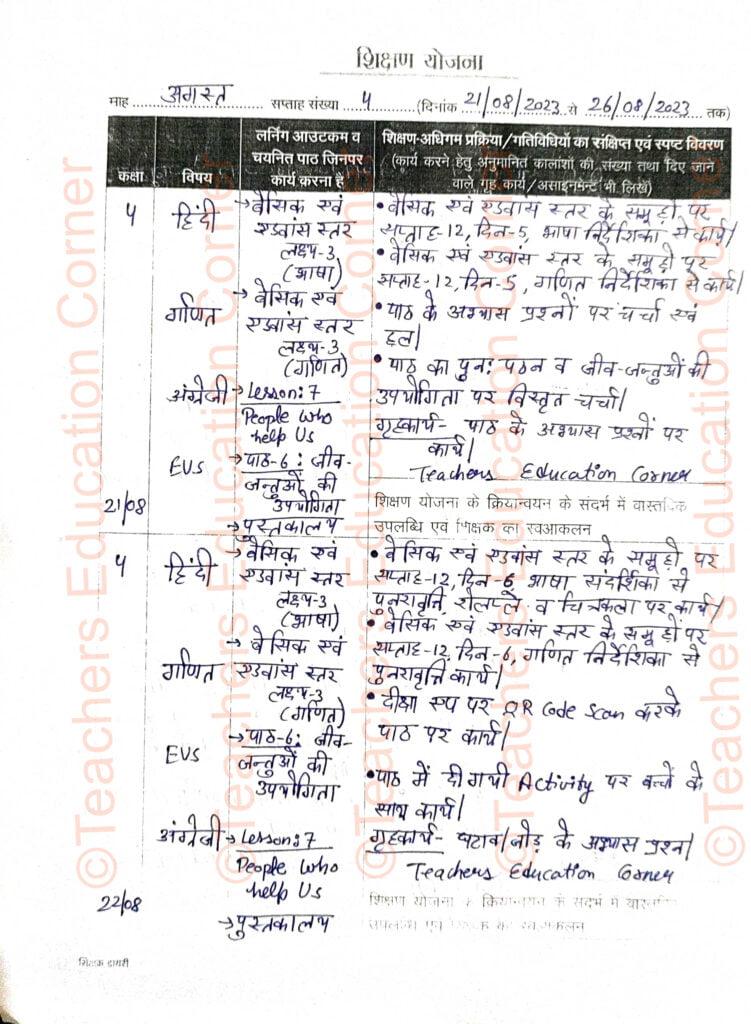 शिक्षण योजना
माह अगस्त सप्ताह संख्या 4 (दिनांक 21/08/2023 से 26/08/2023 तक)
कक्षा
विषय
लर्निंग आउटकम व
चयनित पाठ जिनपर
कार्य करना है
शिक्षण-अधिगम प्रक्रिया/गतिविधियों का संक्षिप्त एवं स्पष्ट विवरण
(कार्य करने हेतु अनुमानित कालांशों की संख्या तथा दिए जाने
वाले गृह कार्य/असाइनमेन्ट भी लिखें)
4
21/08
हिंदी
गणित
अंग्रेजी
EVS
→ बेसिक एवं
एडवांस स्तर
लक्ष्य-3
(भाषा)
→ बेसिक एवं
एडवांस स्तर
लक्ष्य-3
(गणित)
→ Lesson:7
People Who
help Us
→ पाठ-6: जीव-
जन्तुओं की
उपयोगिता
→ पुस्तकालय
• बेसिक एवं एडवांस स्तर के समूहो पर
सप्ताह-12, दिन-5, भाषा निर्देशिका से कार्य।
• बेसिक एवं एडवांस स्तर के समूहो पर
सप्ताह-12, दिन-5, गणित निर्देशिका से कार्य।
• पाठ के अभ्यास प्रश्नों पर चर्चा एवं
हल।
• पाठ का पुन: पठन व जीव-जन्तुओं की
उपयोगिता पर विस्तृत चर्चा।
गृहकार्य- पाठ के अभ्यास प्रश्नों पर
कार्य।
Teachers Education Corner
शिक्षण योजना के क्रियान्वयन के संदर्भ में वास्तविक
उपलब्धि एवं शिक्षक का स्वआकलन
4
22/08
हिंदी
गणित
EVS
अंग्रेजी
→ बेसिक एवं
एडवांस स्तर
लक्ष्य-3
(भाषा)
→ बेसिक एवं
एडवांस स्तर
लक्ष्य-3
(गणित)
→ पाठ-6: जीव-
जन्तुओं की
उपयोगिता
→ Lesson:7
People Who
help Us
→ पुस्तकालय
• बेसिक एवं एडवांस स्तर के समूहो पर
सप्ताह-12, दिन-6, भाषा संदर्शिका से
पुनरावृत्ति, रोलप्ले व चित्रकला पर कार्य।
• बेसिक एवं एडवांस स्तर के समूहों पर
सप्ताह-12, दिन-6, गणित निर्देशिका से
पुनरावृत्ति कार्य।
• दीक्षा एप पर QR Code Scan करके
पाठ पर कार्य।
• पाठ में दी गयी Activity पर बच्चों के
साथ कार्य।
गृहकार्य- घटाव/जोड़ के अभ्यास प्रश्न।
Teachers Education Corner
शिक्षण योजना के क्रियान्वयन के संदर्भ में वास्तविक
उपलब्धि एवं शिक्षक का स्वआकलन
शिक्षक डायरी
©Teachers Education Corner
©Teachers Education Corner
©Teachers Education Corner
©Teachers Education Corner